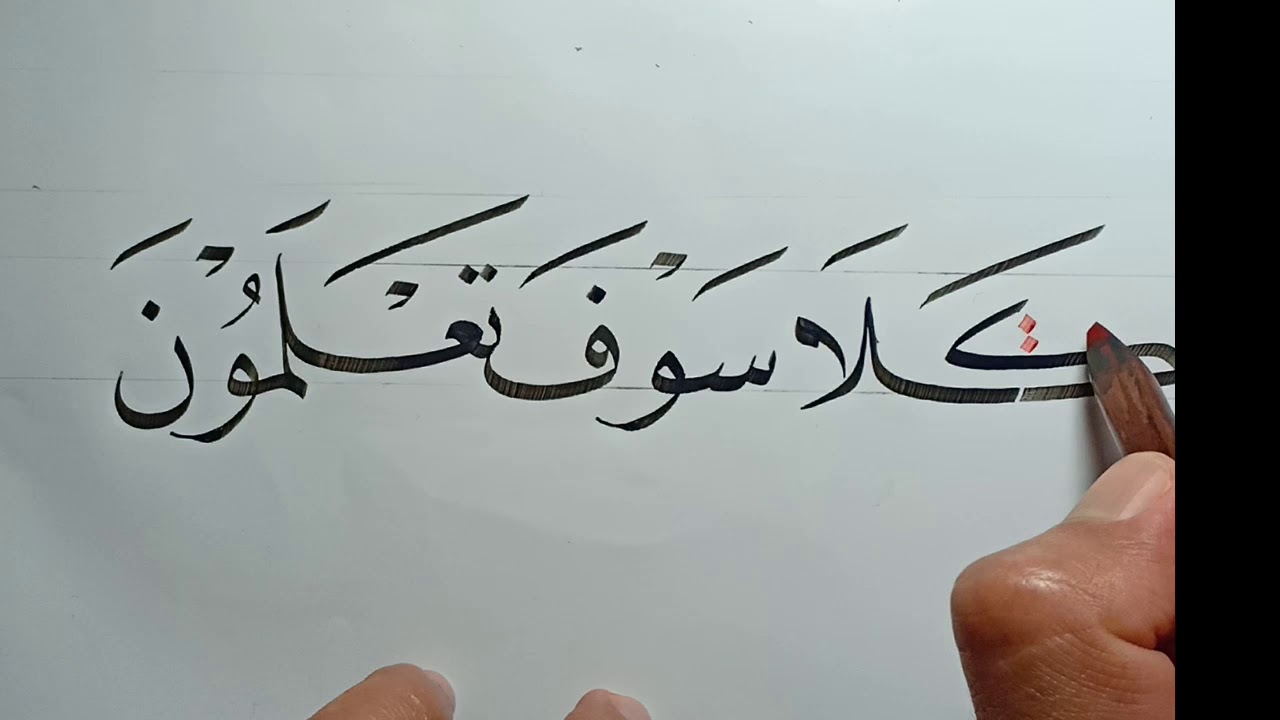 كَلَاسَوْفَ تَعْلَمُوْنَ